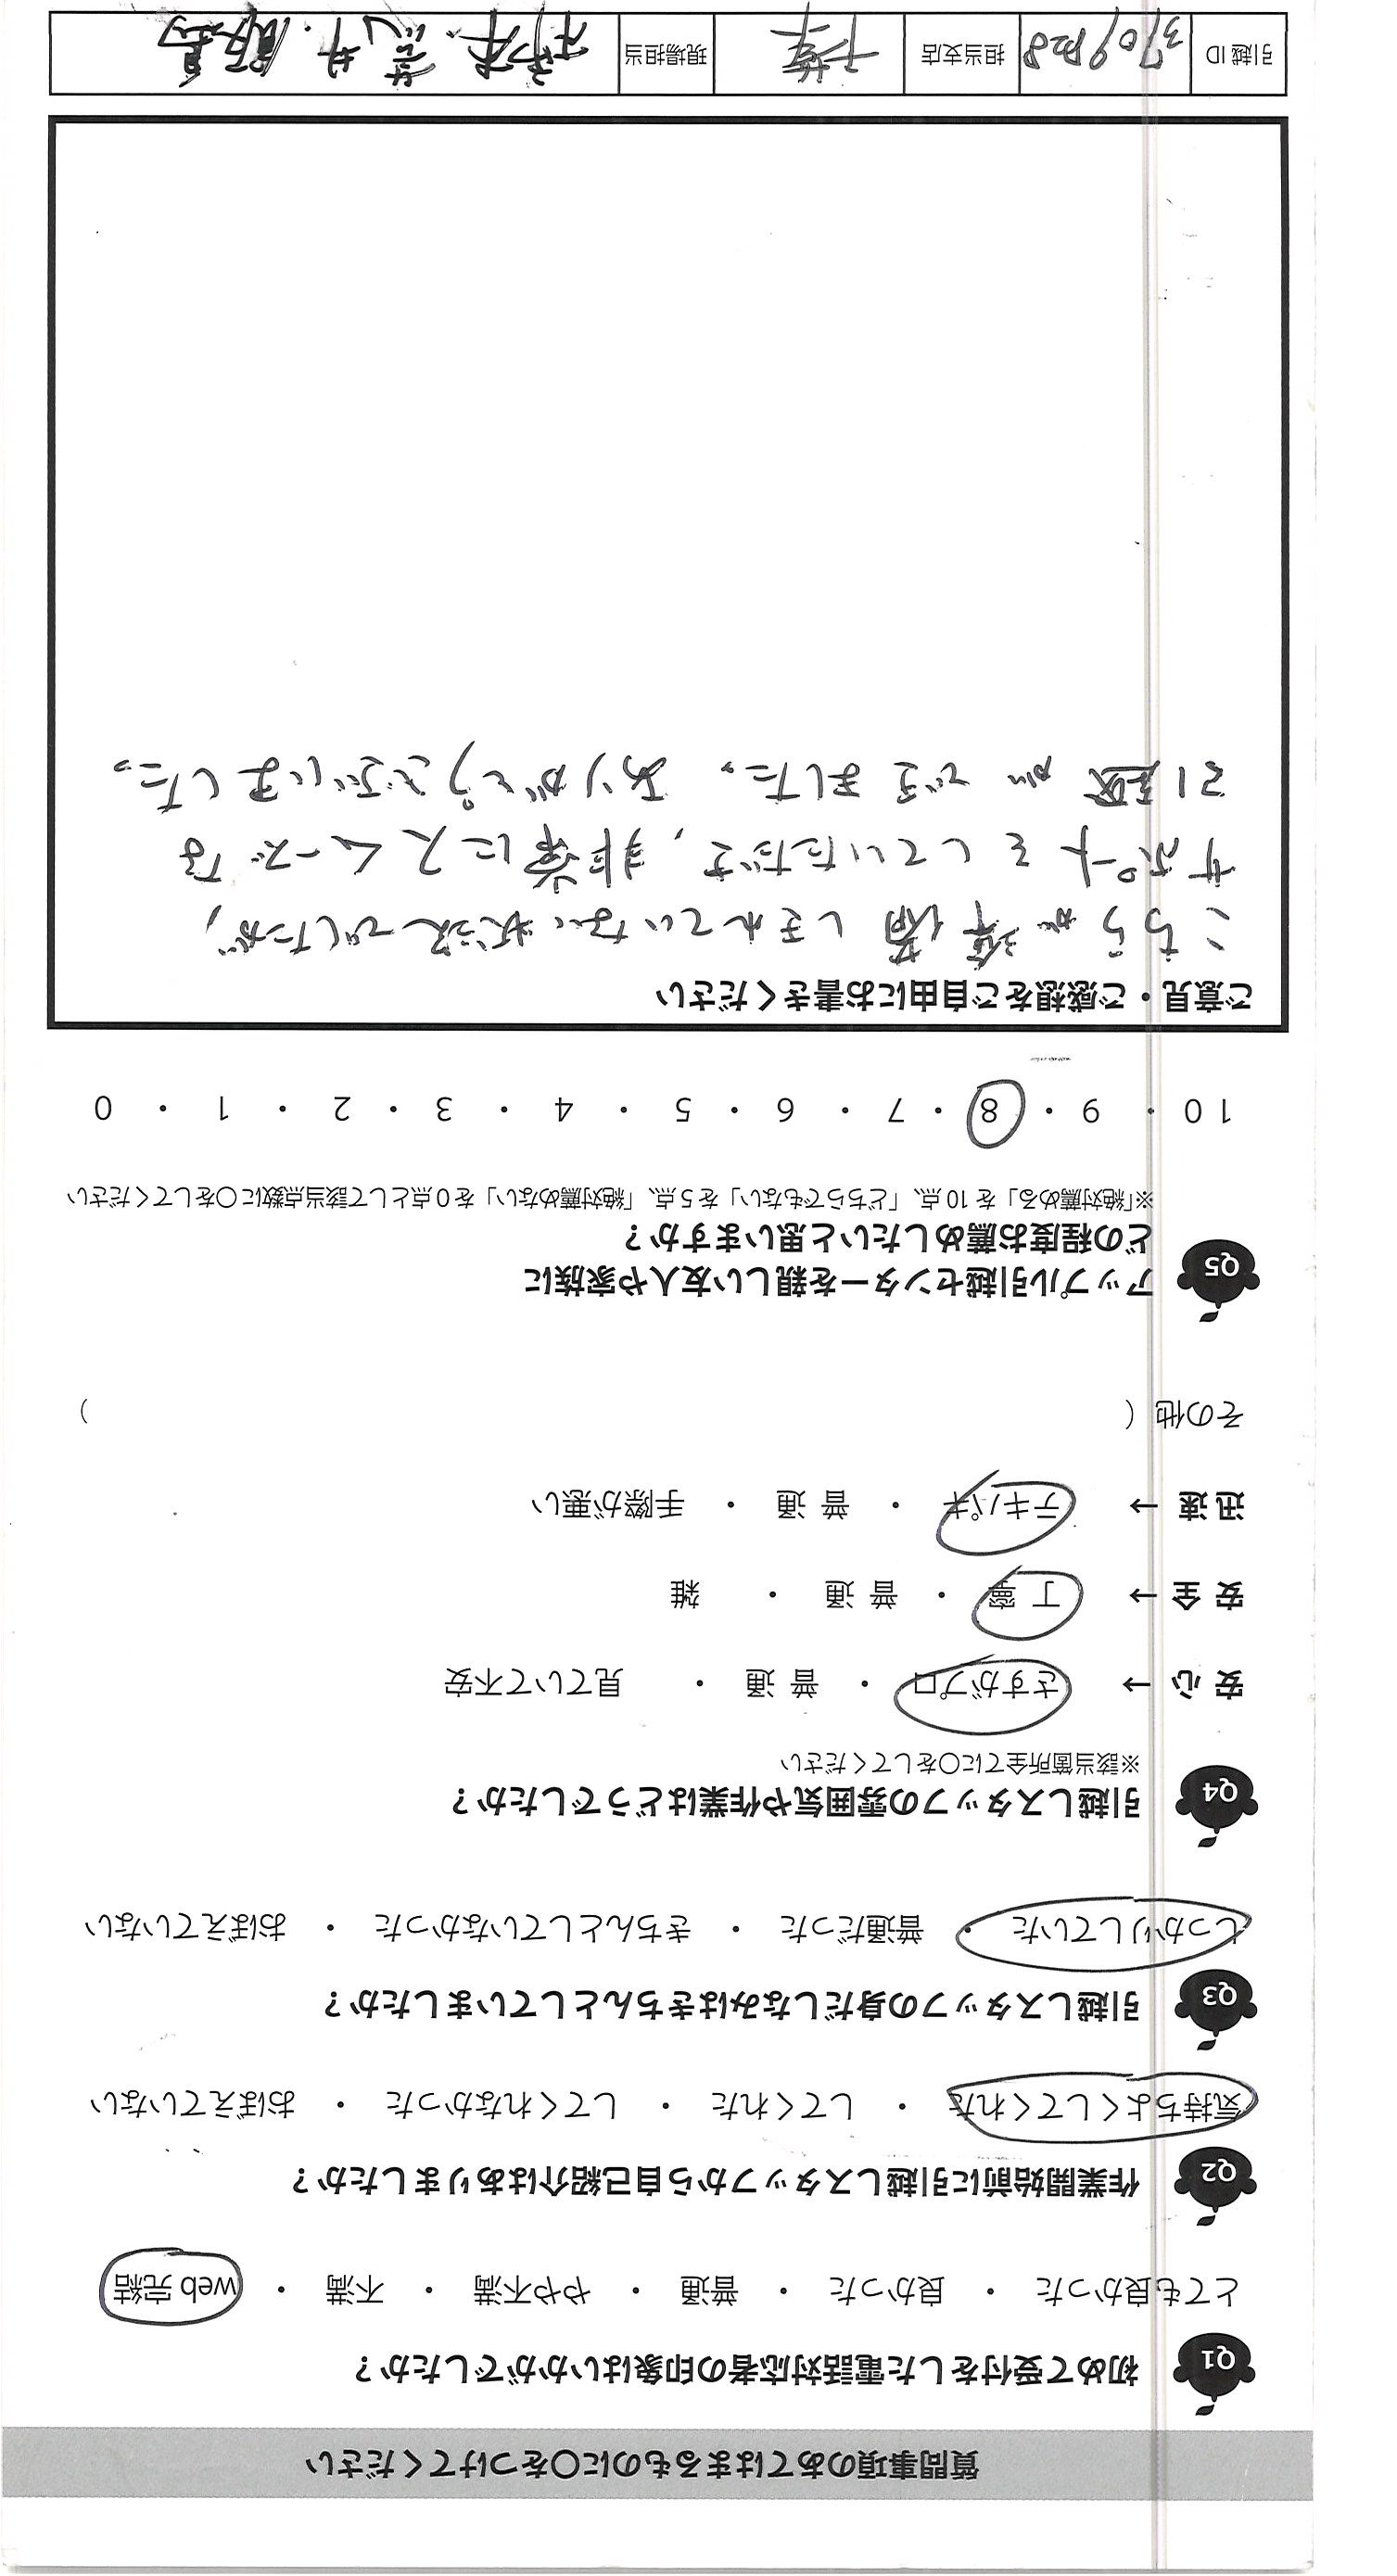 質問事項のあてはまるものに○をつけてください
Q1 初めて受付をした電話対応者の印象はいかがでしたか？
とても良かった ・ 良かった ・ 普通 ・ やや不満 ・ 不満 ・ web 完結
Q2 作業開始前に引越しスタッフから自己紹介はありましたか？
気持ちよくしてくれた ・ してくれた ・ してくれなかった ・ おぼえていない
Q3 引越しスタッフの身だしなみはきちんとしていましたか？
しっかりしていた ・ 普通だった ・ きちんとしていなかった ・ おぼえていない
Q4 引越しスタッフの雰囲気や作業はどうでしたか？
※該当箇所全てに○をしてください
安 心 → さすがプロ ・ 普 通 ・ 見ていて不安
安 全 → 丁 寧 ・ 普 通 ・ 雑
迅 速 → テキパキ ・ 普 通 ・ 手際が悪い
その他（ ）
Q5 アップル引越センターを親しい友人や家族に
どの程度お薦めしたいと思いますか？
※「絶対薦める」を 10 点、「どちらでもない」を 5 点、「絶対薦めない」を 0 点として該当点数に○をしてください
10 ・ 9 ・ 8 ・ 7 ・ 6 ・ 5 ・ 4 ・ 3 ・ 2 ・ 1 ・ 0
ご意見・ご感想をご自由にお書きください
こちらが準備しきれていない状況でしたが、
サポートをしていただき、非常にスムーズな
引越ができました。ありがとうございました。
引越 ID 担当支店 千葉 現場担当 荒井. 飯島